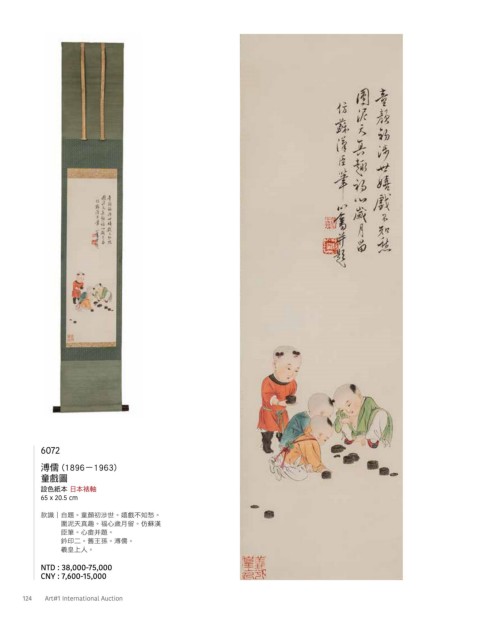 童顏初涉世嬉戲不知愁
圍泥天真趣福心歲月留
仿蘇漢臣筆心畬并題
6072
溥儒 (1896－1963)
童戲圖
設色紙本 日本裱軸
65 x 20.5 cm
款識｜自題。童顏初涉世。嬉戲不知愁。
圍泥天真趣。福心歲月留。仿蘇漢
臣筆。心畬并題。
鈐印二。舊王孫。溥儒。
羲皇上人。
NTD : 38,000-75,000
CNY : 7,600-15,000
124 Art#1 International Auction